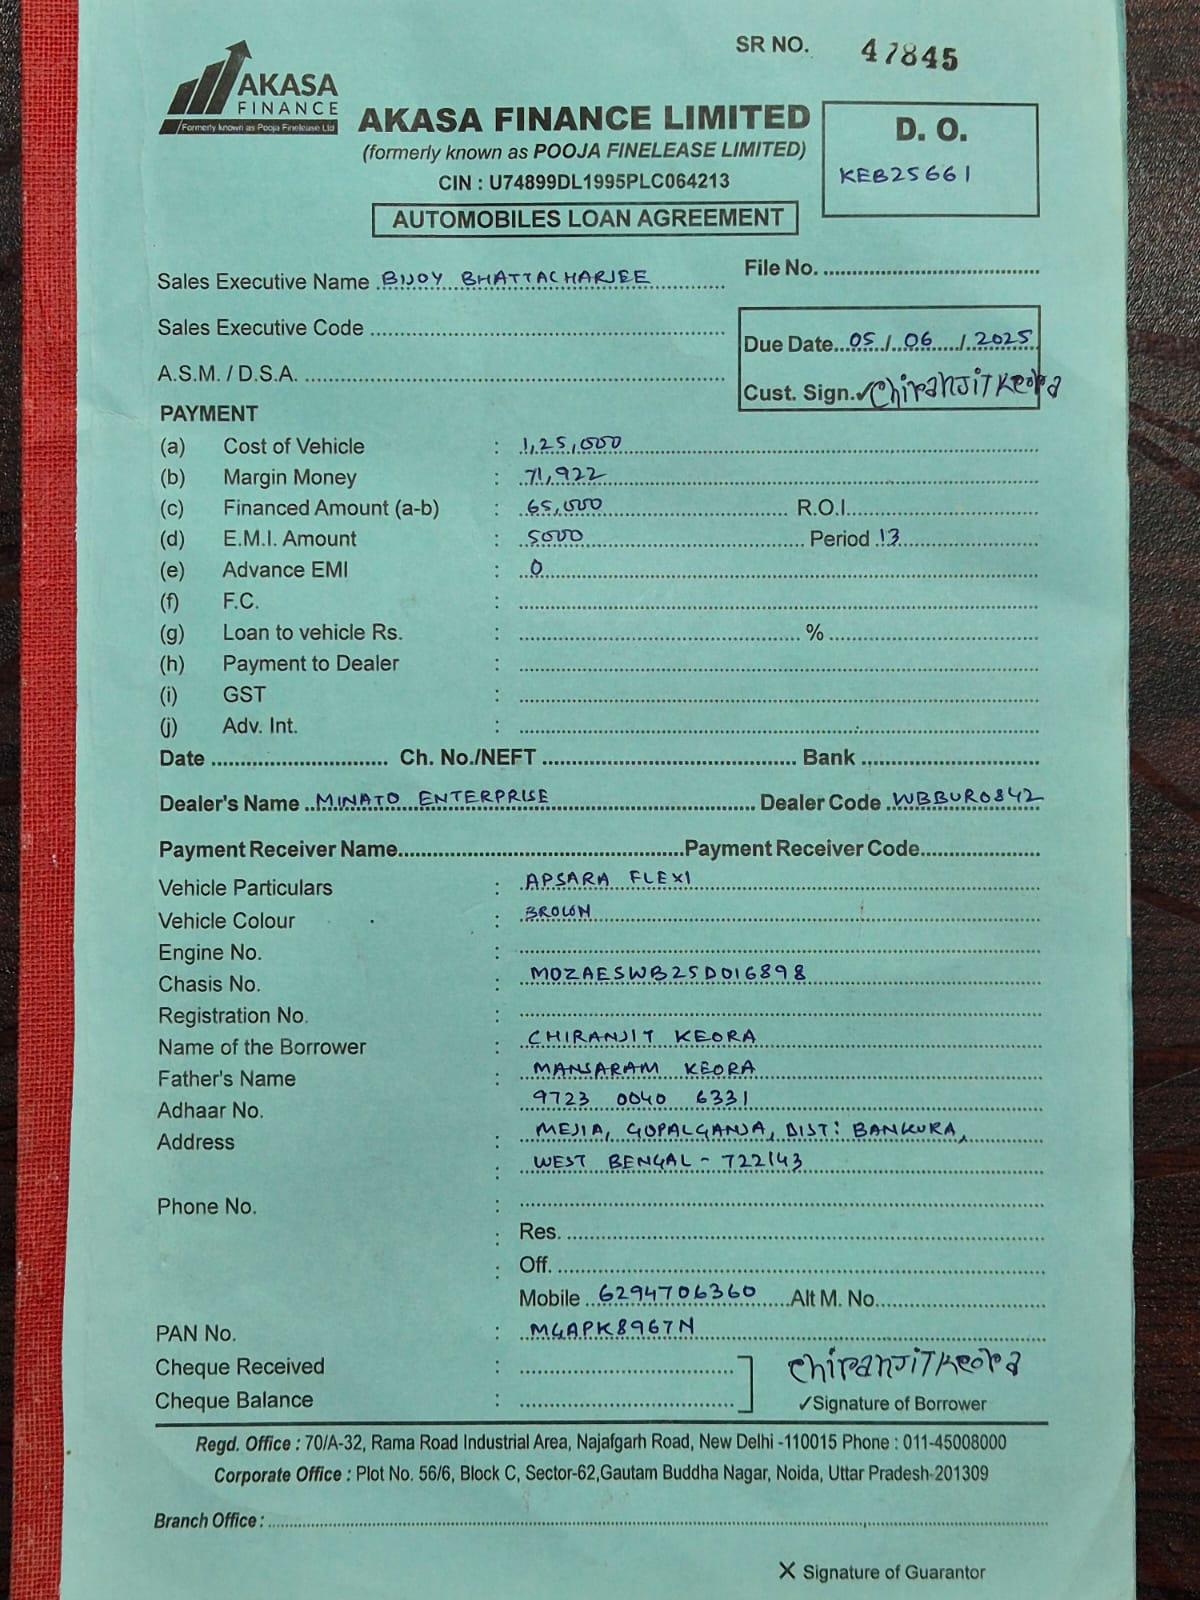 SR NO. 47845
AKASA
FINANCE
Formerly known as Pooja Finelease Ltd
AKASA FINANCE LIMITED
(formerly known as POOJA FINELEASE LIMITED)
CIN : U74899DL1995PLC064213
AUTOMOBILES LOAN AGREEMENT
D. O.
KEB25661
Sales Executive Name BIJOY BHATTACHARJEE
File No.
Sales Executive Code
A.S.M. / D.S.A.
Due Date 05 / 06 / 2025
Cust. Sign. ✓ Chiranjit Keora
PAYMENT
(a) Cost of Vehicle : 1,25,000
(b) Margin Money : 71,922
(c) Financed Amount (a-b) : 65,000 R.O.I.
(d) E.M.I. Amount : 5000 Period 13
(e) Advance EMI : 0
(f) F.C. :
(g) Loan to vehicle Rs. : %
(h) Payment to Dealer :
(i) GST :
(j) Adv. Int. :
Date Ch. No./NEFT Bank
Dealer's Name MINATO ENTERPRISE Dealer Code WBBUR0842
Payment Receiver Name Payment Receiver Code
Vehicle Particulars : APSARA FLEXI
Vehicle Colour : BROWN
Engine No. :
Chasis No. : MOZAESWB25D016898
Registration No. :
Name of the Borrower : CHIRANJIT KEORA
Father's Name : MANSARAM KEORA
Adhaar No. 9723 0040 6331
Address : MEJIA, GOPALGANJA, DIST: BANKURA,
: WEST BENGAL - 722143
Phone No. :
: Res.
: Off.
Mobile 6294706360 Alt M. No.
PAN No. : MGAPK8967N
Cheque Received :
Cheque Balance :
Chiranjit Keora
✓Signature of Borrower
Regd. Office : 70/A-32, Rama Road Industrial Area, Najafgarh Road, New Delhi -110015 Phone : 011-45008000
Corporate Office : Plot No. 56/6, Block C, Sector-62,Gautam Buddha Nagar, Noida, Uttar Pradesh-201309
Branch Office :
X Signature of Guarantor